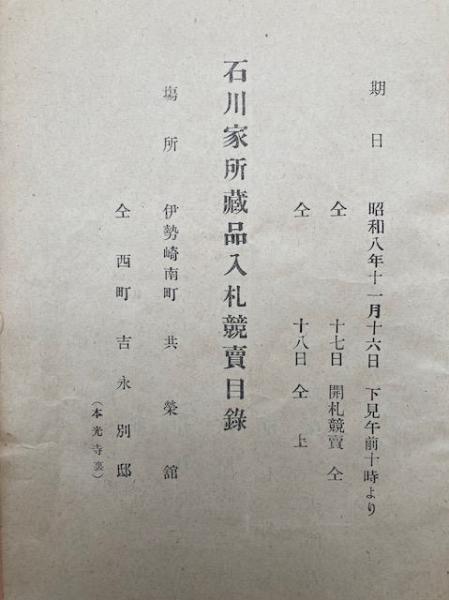 期日 昭和八年十一月十六日 下見午前十時より
仝 十七日 開札競賣 仝
仝 十八日 仝上
石川家所藏品入札競賣目錄
場所 伊勢崎南町 共榮舘
仝 西町 吉永別邸
(本光寺裏)